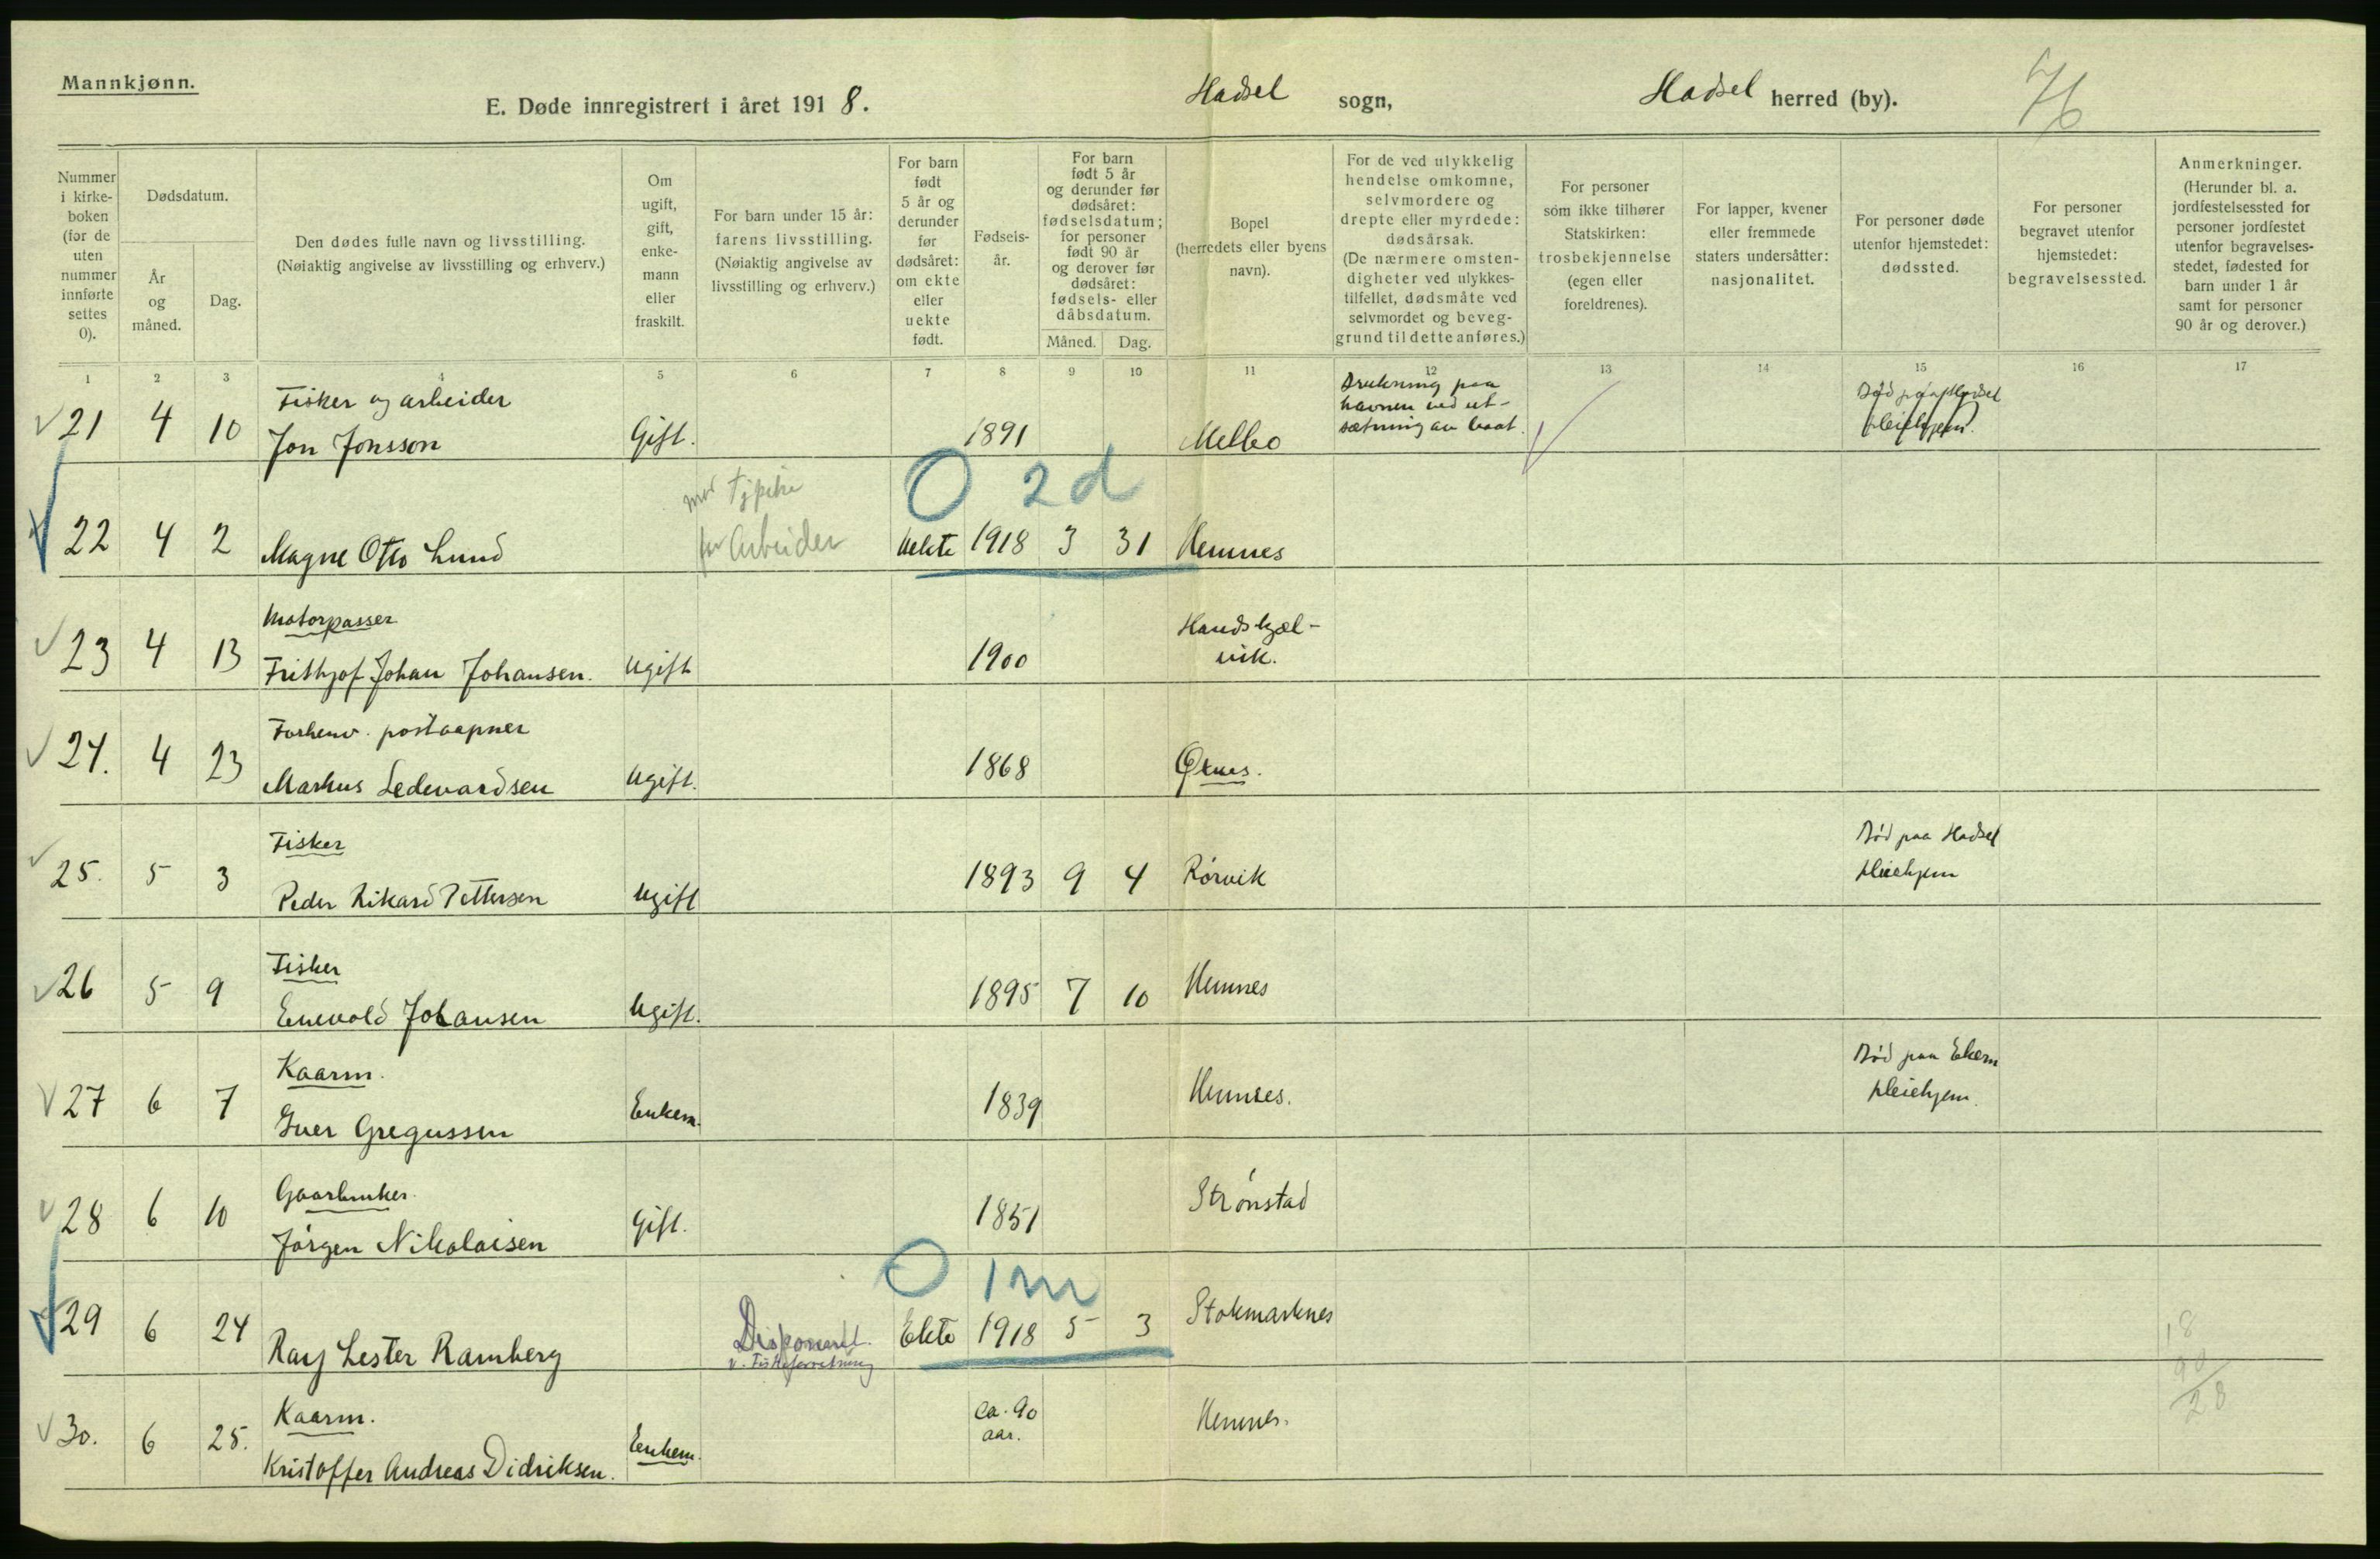 Mannkjønn.
E. Døde innregistrert i året 1918. Hadsel sogn, Hadsel herred (by). 76
Nummer i kirke-boken (for de uten nummer innførte settes 0).
Dødsdatum.
År og måned.
Dag.
Den dødes fulle navn og livsstilling. (Nøiaktig angivelse av livsstilling og erhverv.)
Om ugift, gift, enke-mann eller fraskilt.
For barn under 15 år: farens livsstilling. (Nøiaktig angivelse av livsstilling og erhverv.)
For barn født 5 år og derunder før dødsåret: om ekte eller uekte født.
Fødsels-år.
For barn født 5 år og derunder før dødsåret: fødselsdatum; for personer født 90 år og derover før dødsåret: fødsels- eller dåbsdatum.
Måned. Dag.
Bopel (herredets eller byens navn).
For de ved ulykkelig hendelse omkomne, selvmordere og drepte eller myrdede: dødsårsak. (De nærmere omsten-digheter ved ulykkes-tilfellet, dødsmåte ved selvmordet og beveg-grund til dette anføres.)
For personer som ikke tilhører Statskirken: trosbekjennelse (egen eller foreldrenes).
For lapper, kvener eller fremmede staters undersåtter: nasjonalitet.
For personer døde utenfor hjemstedet: dødssted.
For personer begravet utenfor hjemstedet: begravelsessted.
Anmerkninger. (Herunder bl. a. jordfestelsessted for personer jordfestet utenfor begravelses-stedet, fødested for barn under 1 år samt for personer 90 år og derover.)
1 2 3 4 5 6 7 8 9 10 11 12 13 14 15 16 17
Fisker og arbeider
21 4 10 Jon Jonsson Gift. 1891 Melbo
Drukning paa
havnen ved ut-
sætning av baat.
Død paa Hadsel
pleiehjem.
O 2d
mor Tjpike
far Arbeider
22 4 2 Magne Otto Lund Uekte 1918 3 31 Hennes
Motorpasser
23 4 13 Frithjof Johan Johansen. Ugift 1900 Handskjæl-
vik.
Forhenv. postaapner
24. 4 23 Markus Sedevardsen Ugift. 1868 Øknes.
Fisker
25. 5 3 Peder Rikard Pettersen Ugift 1893 9 4 Rørvik
Død paa Hadsel
pleiehjem
Fisker
26 5 9 Enevold Johansen Ugift. 1895 7 10 Hennes
Kaarm.
27 6 7 Iver Gregussen Enkem. 1839 Hennes.
Død paa Ekern
pleiehjem.
Gaarbruker.
28 6 10 Jørgen Nikolaisen Gift. 1851 Strønstad
O 1m
29 6 24 Ray Lester Ramberg Disponent. Ekte 1918 5 3 Stokmarknes
v. Fiskeforretning
18
90
28
Kaarm.
30. 6 25. Kristoffer Andreas Didriksen. Enkem. ca. 90
aar. Hennes.